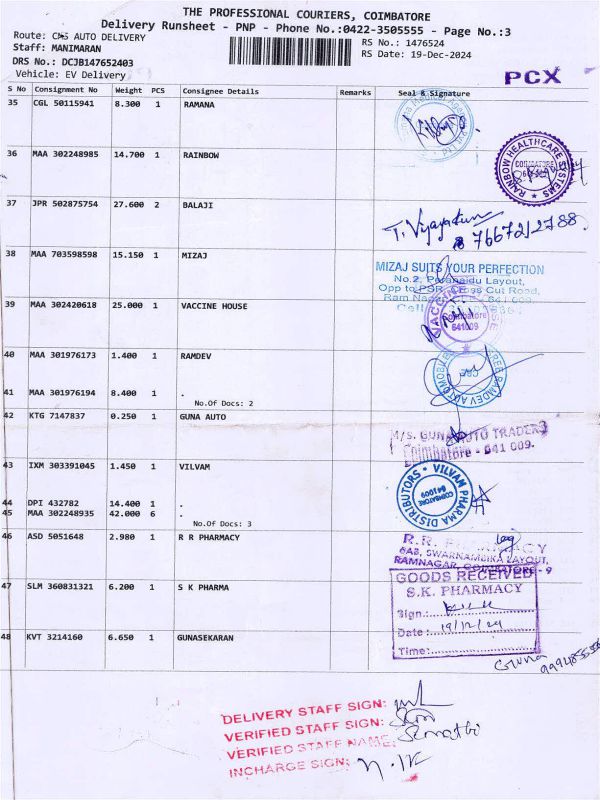 THE PROFESSIONAL COURIERS, COIMBATORE
Delivery Runsheet - PNP - Phone No.:0422-3505555 - Page No.:3
Route: CMS AUTO DELIVERY
RS No.: 1476524
Staff: MANIMARAN
RS Date: 19-Dec-2024
DRS No.: DCJB147652403
Vehicle: EV Delivery
PCX
S No Consignment No Weight PCS Consignee Details Remarks Seal & Signature
35 CGL 50115941 8.300 1 RAMANA
36 MAA 302248985 14.700 1 RAINBOW
RAINBOW HEALTHCARE SYSTEMS
COIMBATORE
37 JPR 502875754 27.600 2 BALAJI
T. Vijayakumar
7667212788
38 MAA 703598598 15.150 1 MIZAJ
MIZAJ SUITS YOUR PERFECTION
No.2, Perunaidu Layout,
Opp to PSR, Cross Cut Road,
Ram Nagar
641 009.
39 MAA 302420618 25.000 1 VACCINE HOUSE
Coimbatore
641009
40 MAA 301976173 1.400 1 RAMDEV
SREE RAMDEV AUTOMOBILES
CBE
41 MAA 301976194 8.400 1 .
No.Of Docs: 2
42 KTG 7147837 0.250 1 GUNA AUTO
M/S. GUNA AUTO TRADERS
Coimbatore - 641 009.
43 IXM 303391045 1.450 1 VILVAM
VILVAM PHARMA DISTRIBUTORS
COIMBATORE
641009
44 DPI 432782 14.400 1 .
45 MAA 302248935 42.000 6 .
No.Of Docs: 3
46 ASD 5051648 2.980 1 R R PHARMACY
R.R. PHARMACY
6AB, SWARNAMBIKA LAYOUT,
RAMNAGAR, COIMBATORE - 9
47 SLM 360831321 6.200 1 S K PHARMA
GOODS RECEIVED
S.K. PHARMACY
Sign.:
Date: 19/12/24
Time:
48 KVT 3214160 6.650 1 GUNASEKARAN
Guna
DELIVERY STAFF SIGN:
VERIFIED STAFF SIGN:
VERIFIED STAFF NAME:
INCHARGE SIGN: